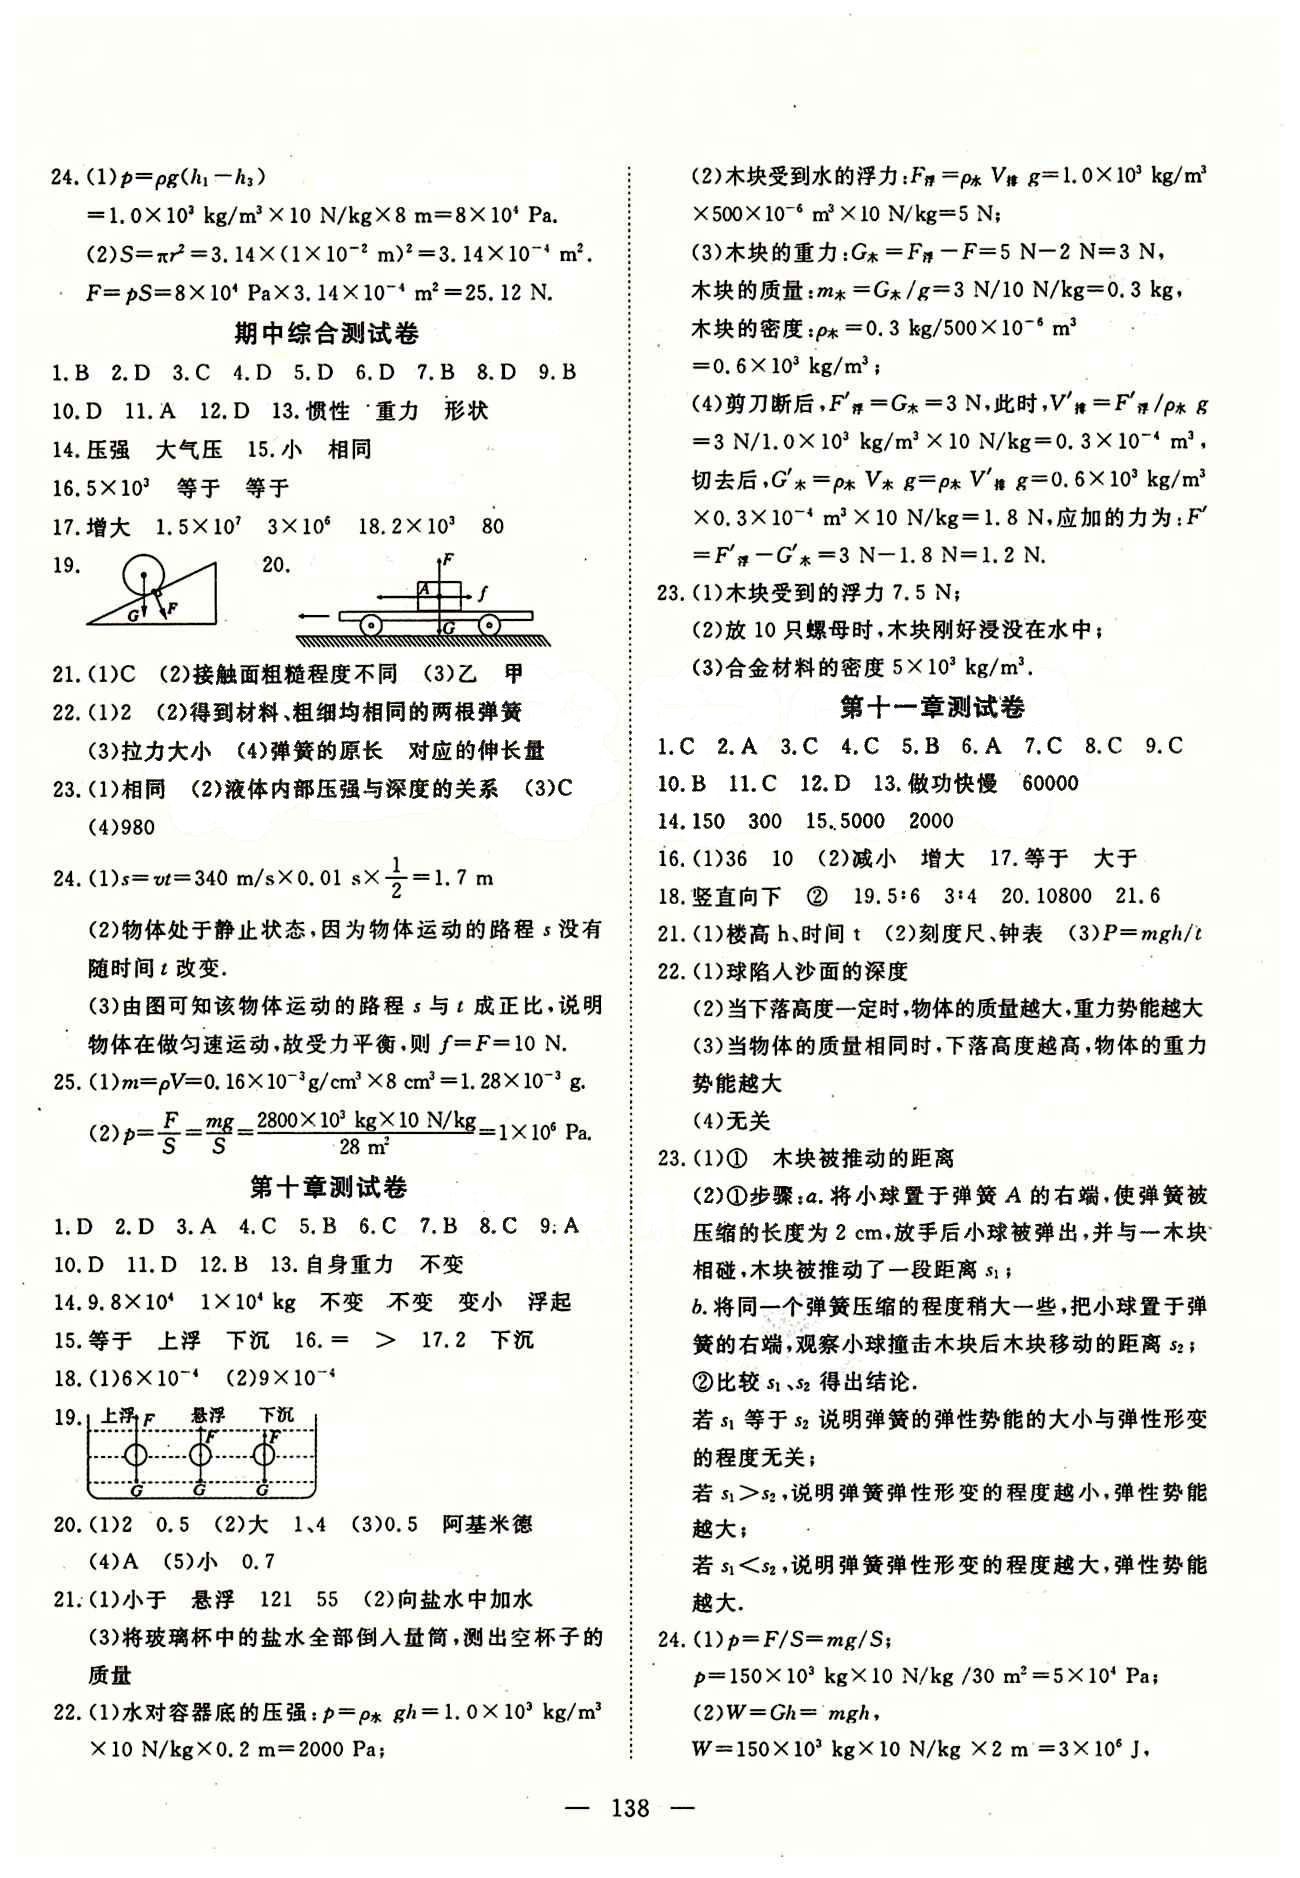 24.(1)p=ρg(h₁-h₃)
=1.0×10³ kg/m³×10 N/kg×8 m=8×10⁴ Pa.
(2)S=πr²=3.14×(1×10⁻² m)²=3.14×10⁻⁴ m².
F=pS=8×10⁴ Pa×3.14×10⁻⁴ m²=25.12 N.
期中综合测试卷
1.B 2.D 3.C 4.D 5.D 6.D 7.B 8.D 9.B
10.D 11.A 12.D 13.惯性 重力 形状
14.压强 大气压 15.小 相同
16.5×10³ 等于 等于
17.增大 1.5×10⁷ 3×10⁶ 18.2×10³ 80
19. G F 20. F A f G
21.(1)C (2)接触面粗糙程度不同 (3)乙 甲
22.(1)2 (2)得到材料、粗细均相同的两根弹簧
(3)拉力大小 (4)弹簧的原长 对应的伸长量
23.(1)相同 (2)液体内部压强与深度的关系 (3)C
(4)980
24.(1)s=vt=340 m/s×0.01 s×1/2=1.7 m
(2)物体处于静止状态,因为物体运动的路程 s 没有
随时间 t 改变.
(3)由图可知该物体运动的路程 s 与 t 成正比,说明
物体在做匀速运动,故受力平衡,则 f=F=10 N.
25.(1)m=ρV=0.16×10⁻³g/cm³×8 cm³=1.28×10⁻³ g.
(2)p=F/S=mg/S=2800×10³ kg×10 N/kg/28 m²=1×10⁶ Pa.
第十章测试卷
1.D 2.D 3.A 4.C 5.B 6.C 7.B 8.C 9.A
10.D 11.D 12.B 13.自身重力 不变
14.9.8×10⁴ 1×10⁴ kg 不变 不变 变小 浮起
15.等于 上浮 下沉 16.= > 17.2 下沉
18.(1)6×10⁻⁴ (2)9×10⁻⁴
19. 上浮 F 悬浮 下沉
F F
G G G
20.(1)2 0.5 (2)大 1、4 (3)0.5 阿基米德
(4)A (5)小 0.7
21.(1)小于 悬浮 121 55 (2)向盐水中加水
(3)将玻璃杯中的盐水全部倒入量筒,测出空杯子的
质量
22.(1)水对容器底的压强:p=ρ水 gh=1.0×10³ kg/m³
×10 N/kg×0.2 m=2000 Pa;
(2)木块受到水的浮力:F浮=ρ水 V排 g=1.0×10³ kg/m³
×500×10⁻⁶ m³×10 N/kg=5 N;
(3)木块的重力:G木=F浮-F=5 N-2 N=3 N,
木块的质量:m木=G木/g=3 N/10 N/kg=0.3 kg,
木块的密度:ρ木=0.3 kg/500×10⁻⁶ m³
=0.6×10³ kg/m³;
(4)剪刀断后,F′浮=G木=3 N,此时,V′排=F′浮/ρ水 g
=3 N/1.0×10³ kg/m³×10 N/kg=0.3×10⁻⁴ m³,
切去后,G′木=ρ木 V木 g=ρ木 V′排 g=0.6×10³ kg/m³
×0.3×10⁻⁴ m³×10 N/kg=1.8 N,应加的力为:F′
=F′浮-G′木=3 N-1.8 N=1.2 N.
23.(1)木块受到的浮力 7.5 N;
(2)放 10 只螺母时,木块刚好浸没在水中;
(3)合金材料的密度 5×10³ kg/m³.
第十一章测试卷
1.C 2.A 3.C 4.C 5.B 6.A 7.C 8.C 9.C
10.B 11.C 12.D 13.做功快慢 60000
14.150 300 15.5000 2000
16.(1)36 10 (2)减小 增大 17.等于 大于
18.竖直向下 ② 19.5∶6 3∶4 20.10800 21.6
21.(1)楼高 h、时间 t (2)刻度尺、钟表 (3)P=mgh/t
22.(1)球陷人沙面的深度
(2)当下落高度一定时,物体的质量越大,重力势能越大
(3)当物体的质量相同时,下落高度越高,物体的重力
势能越大
(4)无关
23.(1)① 木块被推动的距离
(2)①步骤:a.将小球置于弹簧 A 的右端,使弹簧被
压缩的长度为 2 cm,放手后小球被弹出,并与一木块
相碰,木块被推动了一段距离 s₁;
b.将同一个弹簧压缩的程度稍大一些,把小球置于弹
簧的右端,观察小球撞击木块后木块移动的距离 s₂;
②比较 s₁、s₂ 得出结论.
若 s₁ 等于 s₂ 说明弹簧的弹性势能的大小与弹性形变
的程度无关;
若 s₁>s₂,说明弹簧弹性形变的程度越小,弹性势能
越大;
若 s₁<s₂,说明弹簧弹性形变的程度越大,弹性势能
越大.
24.(1)p=F/S=mg/S;
p=150×10³ kg×10 N/kg /30 m²=5×10⁴ Pa;
(2)W=Gh= mgh,
W=150×10³ kg×10 N/kg ×2 m =3×10⁶ J,
— 138 —